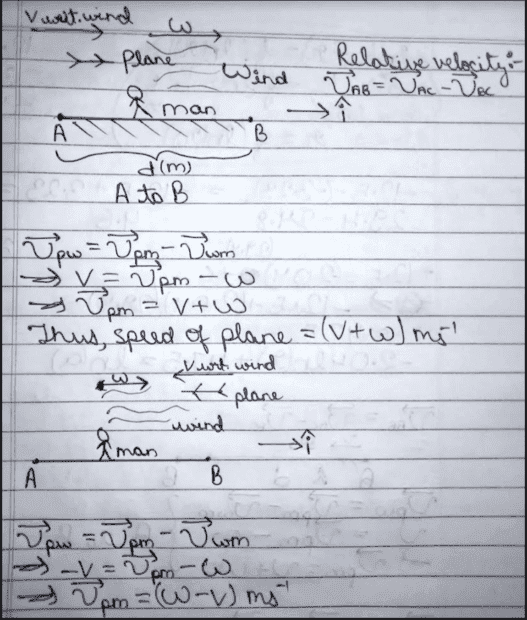 V w.r.t. wind
ω
Plane
Wind
Relative velocity:-
V⃗AB = V⃗AC - V⃗BC
man
î
A
B
d(m)
A to B
V⃗pw = V⃗pm - V⃗wm
⇒ V = V⃗pm - ω
⇒ V⃗pm = V + ω
Thus, speed of plane = (V+ω) ms⁻¹
ω
V w.r.t. wind
plane
wind
man
î
A
B
V⃗pw = V⃗pm - V⃗wm
⇒ -V = V⃗pm - ω
⇒ V⃗pm = (ω-V) ms⁻¹